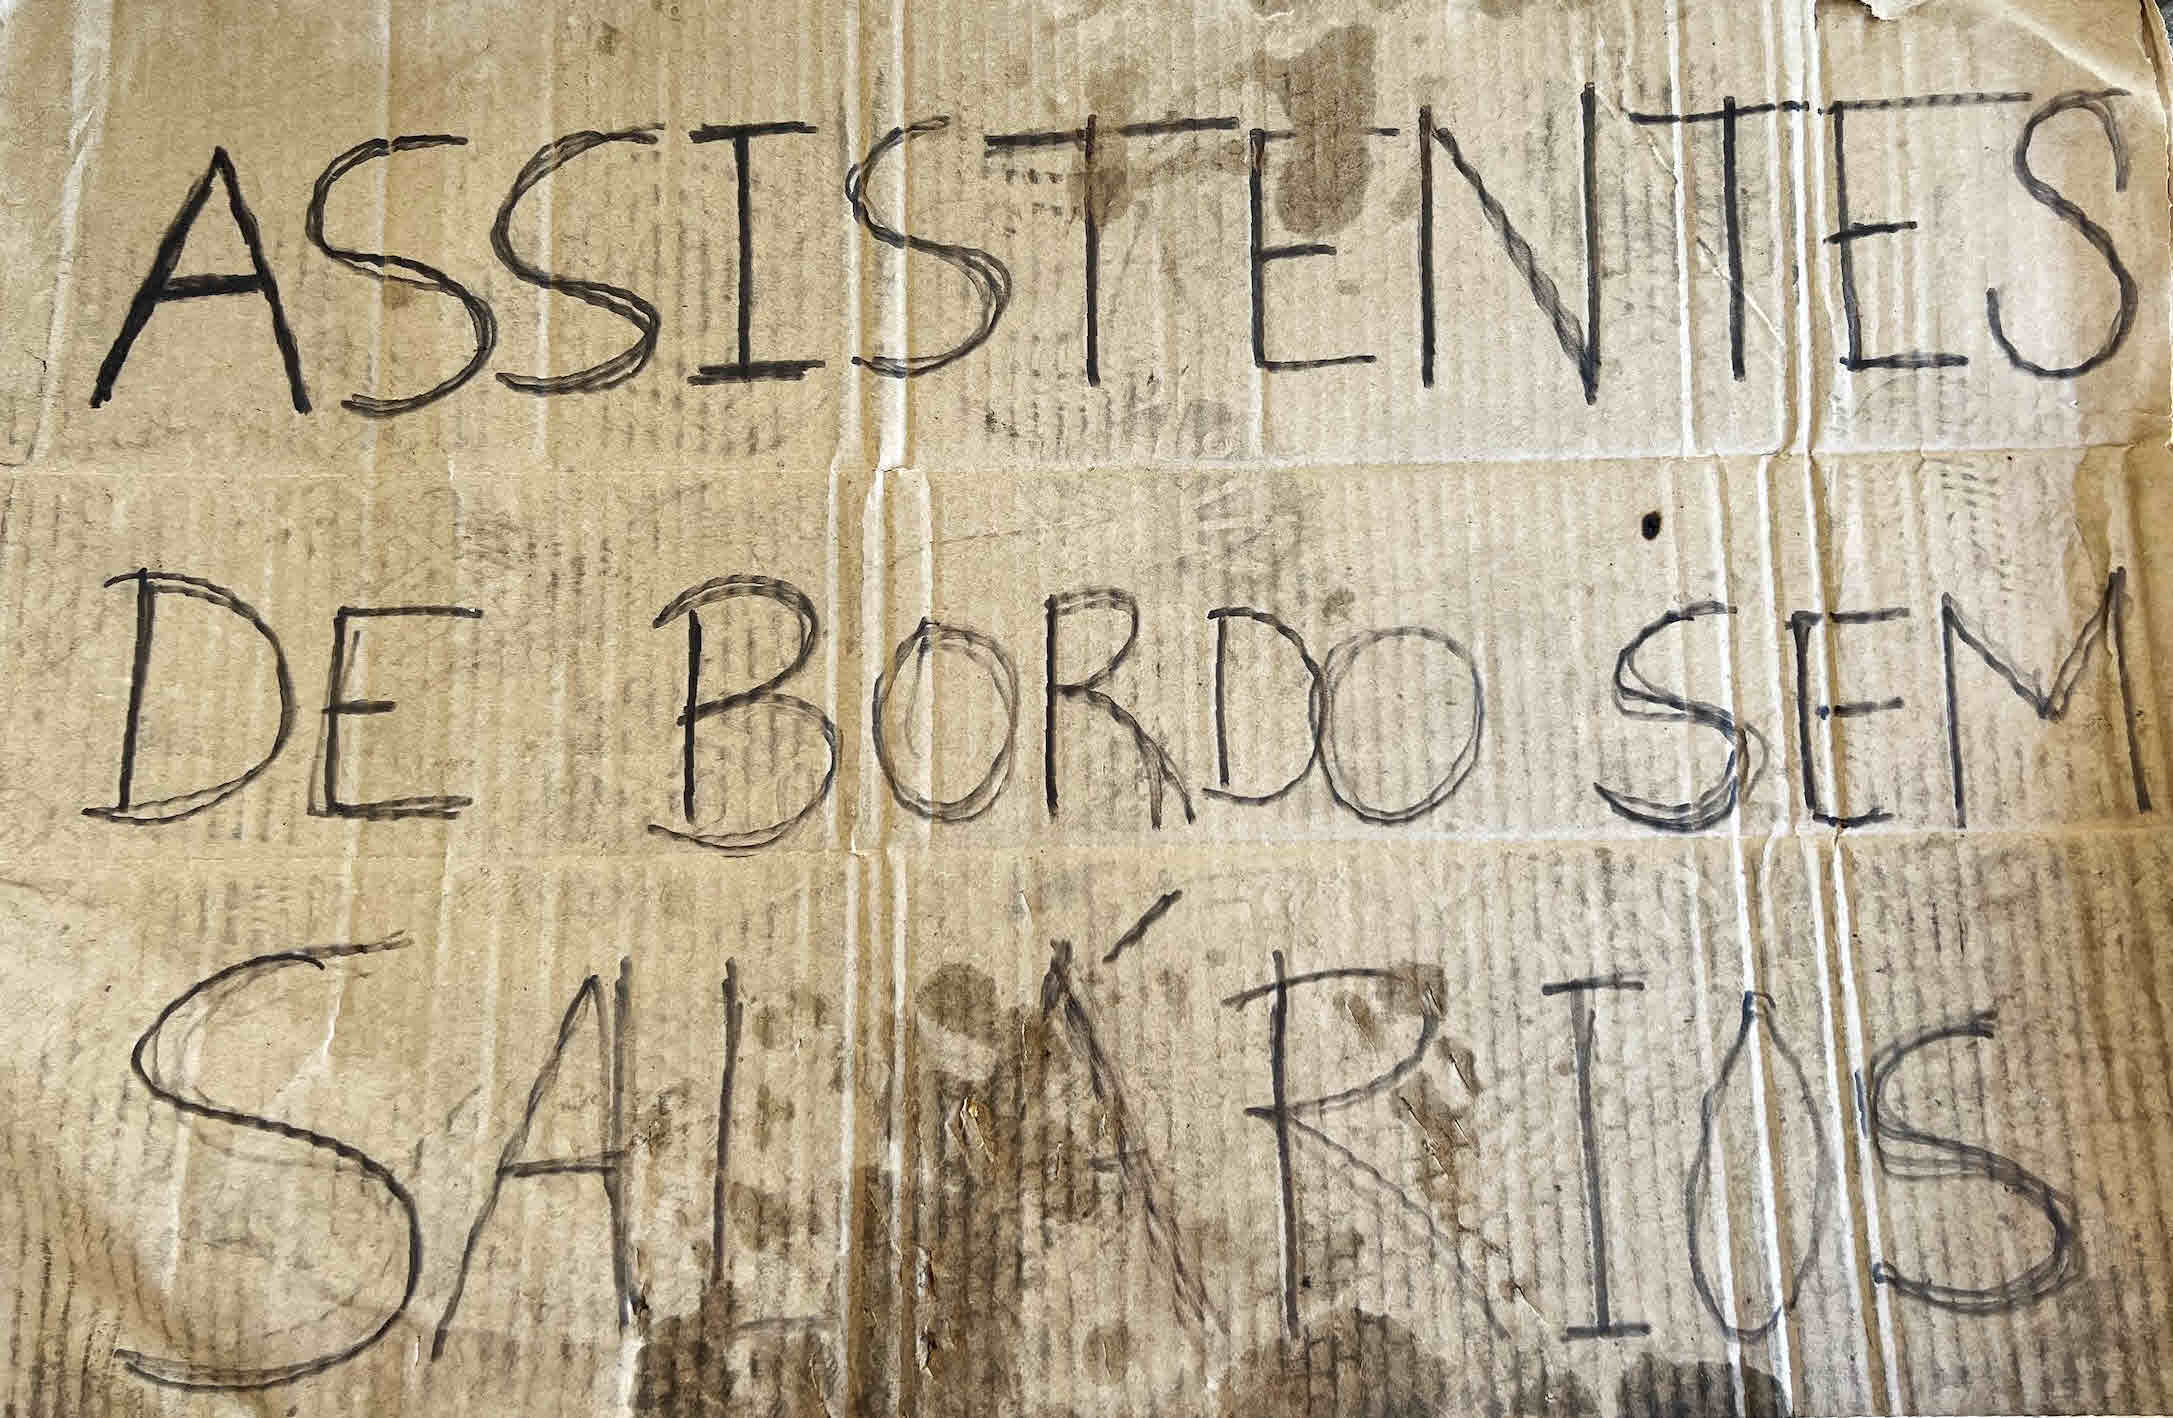 ASSISTENTES
DE BORDO SEM
SALÁRIOS